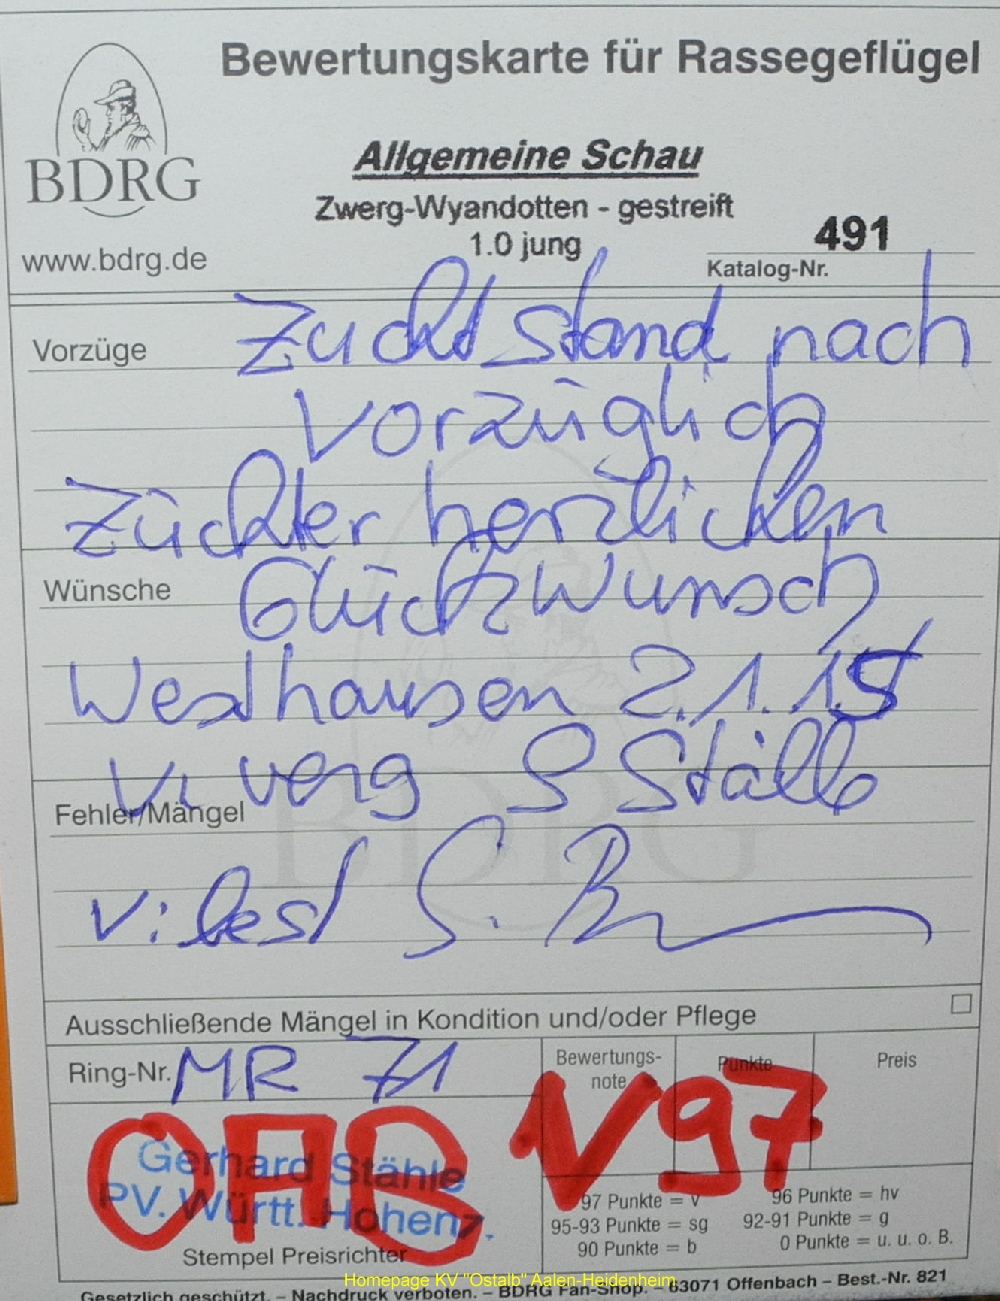 Bewertungskarte für Rassegeflügel
BDRG
www.bdrg.de
Allgemeine Schau
Zwerg-Wyandotten - gestreift
1.0 jung
491
Katalog-Nr.
Vorzüge
Zuchtstand nach
Vorzüglich
Züchter herzlichen
Wünsche
Glückwunsch
Westhausen 2.1.15
V. verg S Ställe
Fehler/Mängel
V: best G.
BDRG
Ausschließende Mängel in Kondition und/oder Pflege
Ring-Nr. MR 71
Bewertungs-
note
Punkte
Preis
V 97
OAB
Gerhard Stähle
PV. Württ. Hohenz.
Stempel Preisrichter
97 Punkte = v
96 Punkte = hv
95-93 Punkte = sg
92-91 Punkte = g
90 Punkte = b
0 Punkte = u. u. o. B.
Homepage KV "Ostalb" Aalen-Heidenheim
Gesetzlich geschützt. – Nachdruck verboten. – BDRG Fan-Shop. – 63071 Offenbach – Best.-Nr. 821